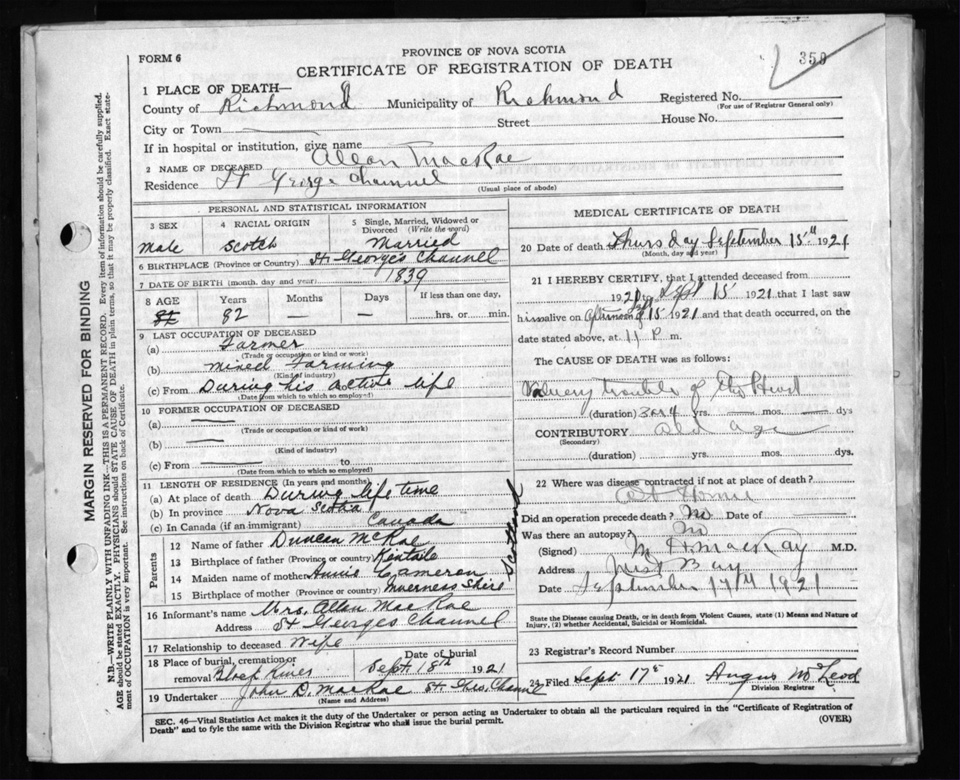 FORM 6
PROVINCE OF NOVA SCOTIA
CERTIFICATE OF REGISTRATION OF DEATH
350
1 PLACE OF DEATH—
County of Richmond Municipality of Richmond Registered No.
(For use of Registrar General only)
City or Town — Street House No.
If in hospital or institution, give name
2 NAME OF DECEASED Allan MacRae
Residence St George Channel
(Usual place of abode)
PERSONAL AND STATISTICAL INFORMATION
3 SEX 4 RACIAL ORIGIN 5 Single, Married, Widowed or Divorced (Write the word)
Male Scotch Married
6 BIRTHPLACE (Province or Country) St George's Channel
7 DATE OF BIRTH (month, day and year) 1839
8 AGE Years Months Days If less than one day,
82 — — hrs. or min.
9 LAST OCCUPATION OF DECEASED
(a) Farmer
(Trade or occupation or kind or work)
(b) Mixed Farming
(Kind of industry)
(c) From During his active life
(Date from which to which so employed)
10 FORMER OCCUPATION OF DECEASED
(a) —
(Trade or occupation or kind of work)
(b) —
(Kind of industry)
(c) From — to
(Date from which to which so employed)
11 LENGTH OF RESIDENCE (In Years and months)
(a) At place of death During life time
(b) In province Nova Scotia
(c) In Canada (if an immigrant) Canada
Parents
12 Name of father Duncan McRae
13 Birthplace of father (Province or country) Kentail Scotland
14 Maiden name of mother Annie Cameron
15 Birthplace of mother (Province or country) Inverness Shire
16 Informant's name Mrs. Allan MacRae
Address St Georges Channel
17 Relationship to deceased Wife
18 Place of burial, cremation or removal Black River
Date of burial Sept. 18th 1921
19 Undertaker John D. MacRae St Geo. Channel
(Name and Address)
MEDICAL CERTIFICATE OF DEATH
20 Date of death Thursday September 15th 1921
(Month, day and year)
21 I HEREBY CERTIFY, that I attended deceased from
1921 to Sept 15 1921 that I last saw
him alive on Afternoon of 15 1921 and that death occurred, on the
date stated above, at 11 P m.
The CAUSE OF DEATH was as follows:
trouble of Heart
(duration) 3 or 4 yrs. — mos. — dys
CONTRIBUTORY old age
(Secondary)
(duration) yrs. mos. dys.
22 Where was disease contracted if not at place of death?
At Home
Did an operation precede death? No Date of
Was there an autopsy? No
(Signed) MacKay M.D.
Address West Bay
Date September 17th 1921
State the Disease causing Death, or in death from Violent Causes, state (1) Means and Nature of Injury, (2) whether Accidental, Suicidal or Homicidal.
23 Registrar's Record Number
24 Filed Sept 17th 1921 Angus McLeod
Division Registrar
SEC. 46—Vital Statistics Act makes it the duty of the Undertaker or person acting as Undertaker to obtain all the particulars required in the "Certificate of Registration of
Death" and to fyle the same with the Division Registrar who shall issue the burial permit. (OVER)
MARGIN RESERVED FOR BINDING
N.B.—WRITE PLAINLY WITH UNFADING INK—THIS IS A PERMANENT RECORD. Every item of information should be carefully supplied.
AGE should be stated EXACTLY. PHYSICIANS should STATE CAUSE OF DEATH in plain terms, so that it may be properly classified. Exact statement of OCCUPATION is very important. See instructions on back of Certificate.